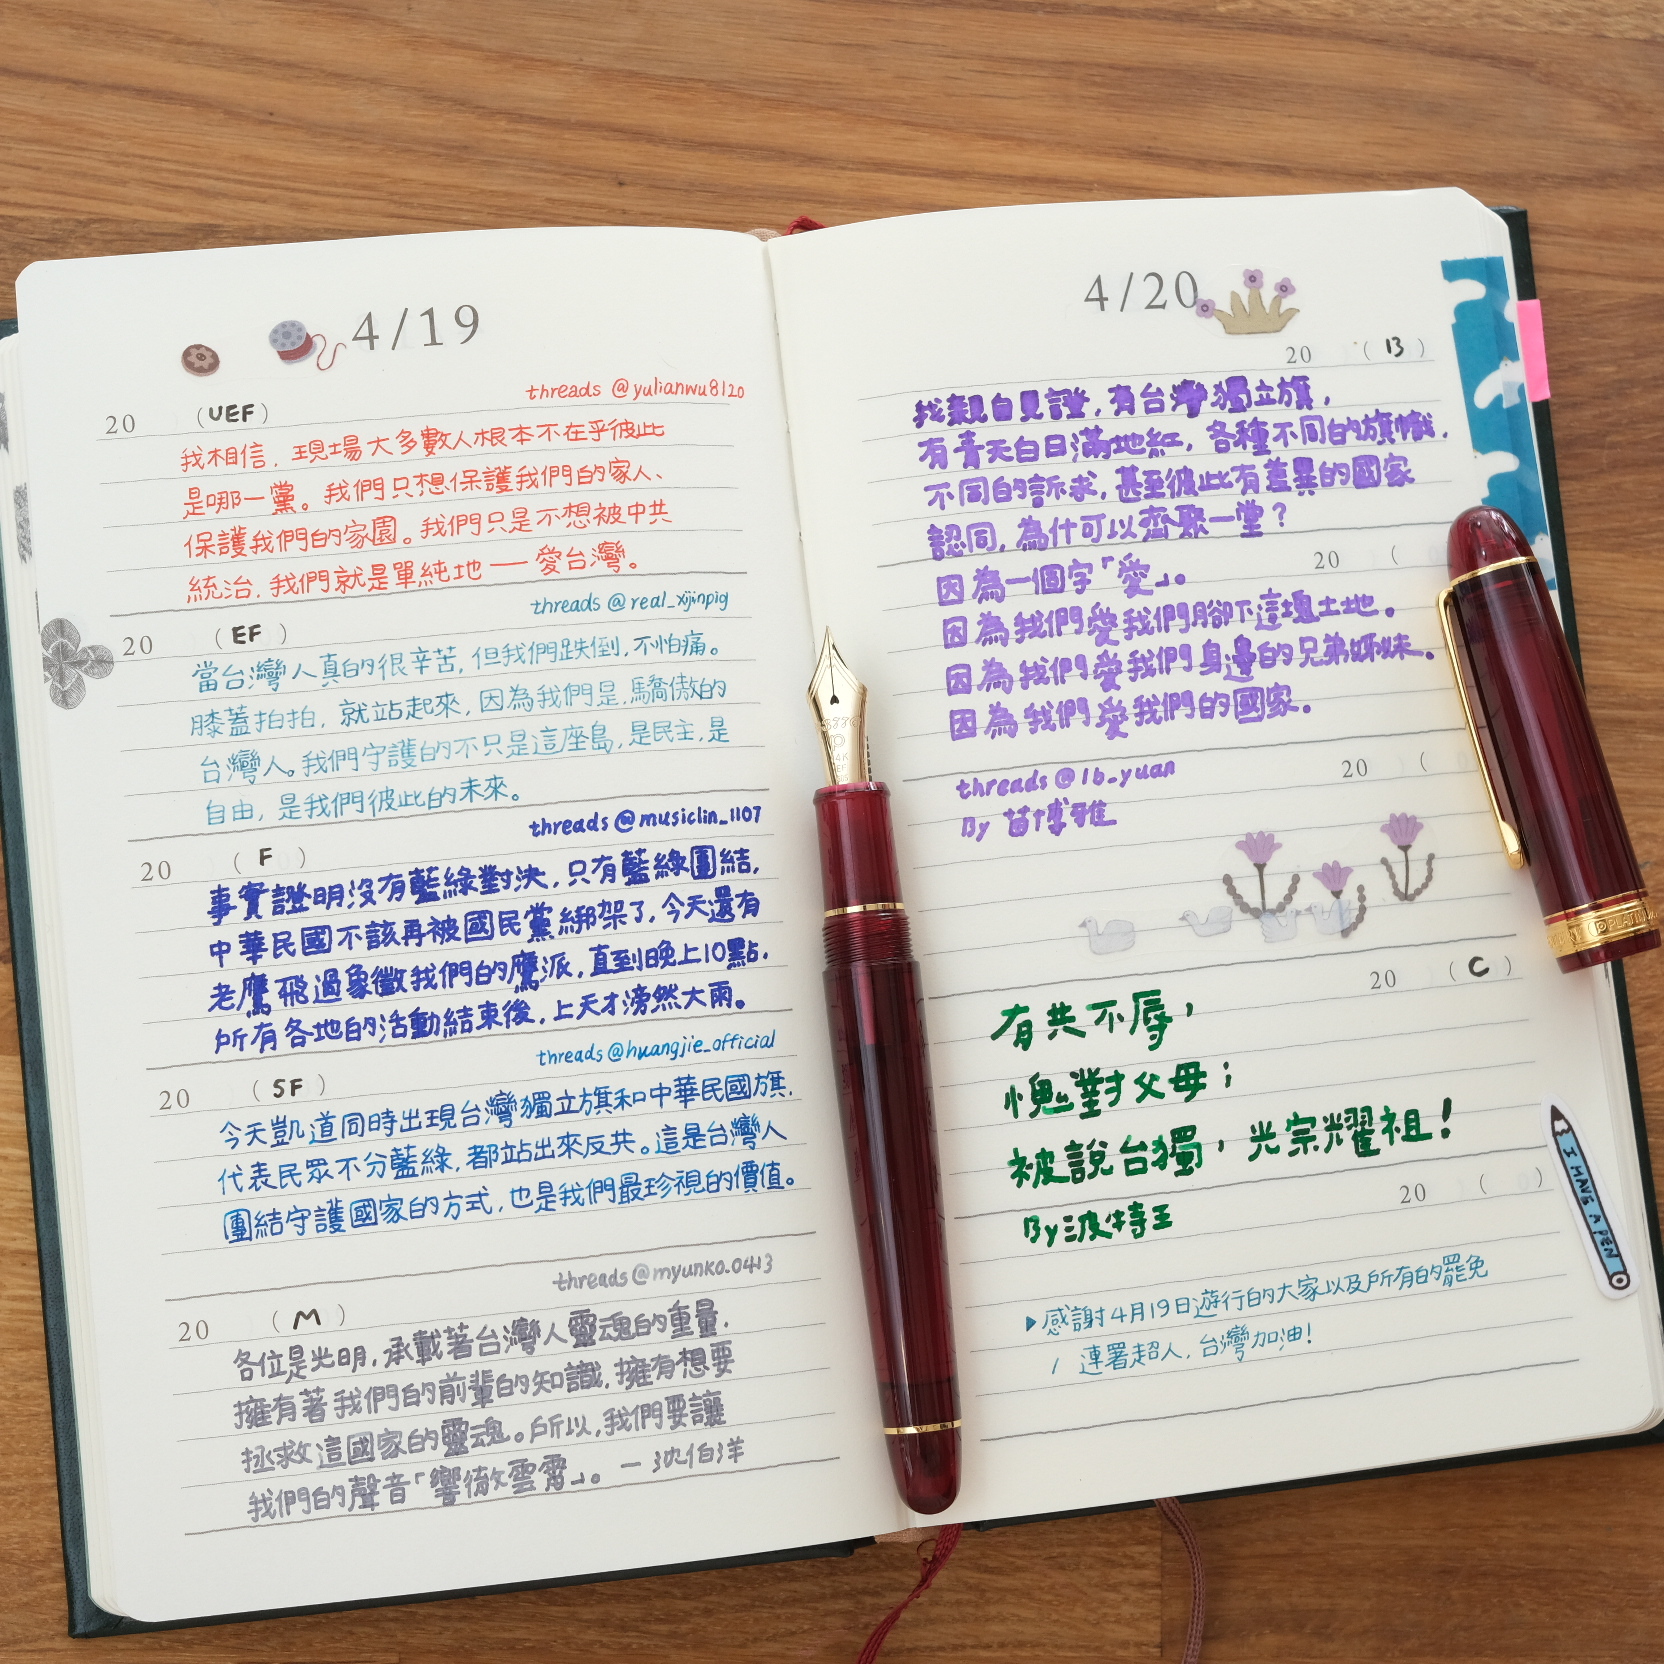 4/19
threads @yulianwu8120
20 (UEF)
我相信，現場大多數人根本不在乎彼此
是哪一黨。我們只想保護我們的家人、
保護我們的家園。我們只是不想被中共
統治，我們就是單純地——愛台灣。
threads @real_xijinpig
20 (EF)
當台灣人真的很辛苦，但我們跌倒，不怕痛。
膝蓋拍拍，就站起來，因為我們是，驕傲的
台灣人。我們守護的不只是這座島，是民主，是
自由，是我們彼此的未來。
threads @musiclin_1107
20 (F)
事實證明沒有藍綠對決，只有藍綠團結，
中華民國不該再被國民黨綁架了，今天還有
老鷹飛過象徵我們的鷹派，直到晚上10點，
所有各地的活動結束後，上天才滂然大雨。
threads@huangjie_official
20 (SF)
今天凱道同時出現台灣獨立旗和中華民國旗，
代表民眾不分藍綠，都站出來反共。這是台灣人
團結守護國家的方式，也是我們最珍視的價值。
threads@myunko.0413
20 (M)
各位是光明，承載著台灣人靈魂的重量，
擁有著我們的前輩的知識，擁有想要
拯救這國家的靈魂。所以，我們要讓
我們的聲音「響徹雲霄」。—沈伯洋
4/20
20 (B)
我親自見證，有台灣獨立旗，
有青天白日滿地紅，各種不同的旗幟，
不同的訴求，甚至彼此有差異的國家
認同，為什可以齊聚一堂？
20 (
因為一個字「愛」。
因為我們愛我們腳下這塊土地。
因為我們愛我們身邊的兄弟姊妹。
因為我們愛我們的國家。
threads@1b_yuan
20 (
By 苗博雅
20 (C)
有共不辱，
愧對父母；
被說台獨，光宗耀祖！
20 ( )
By波特王
▶感謝4月19日遊行的大家以及所有的罷免
連署超人，台灣加油！
I HAVE A PEN
PLATINUM
14K